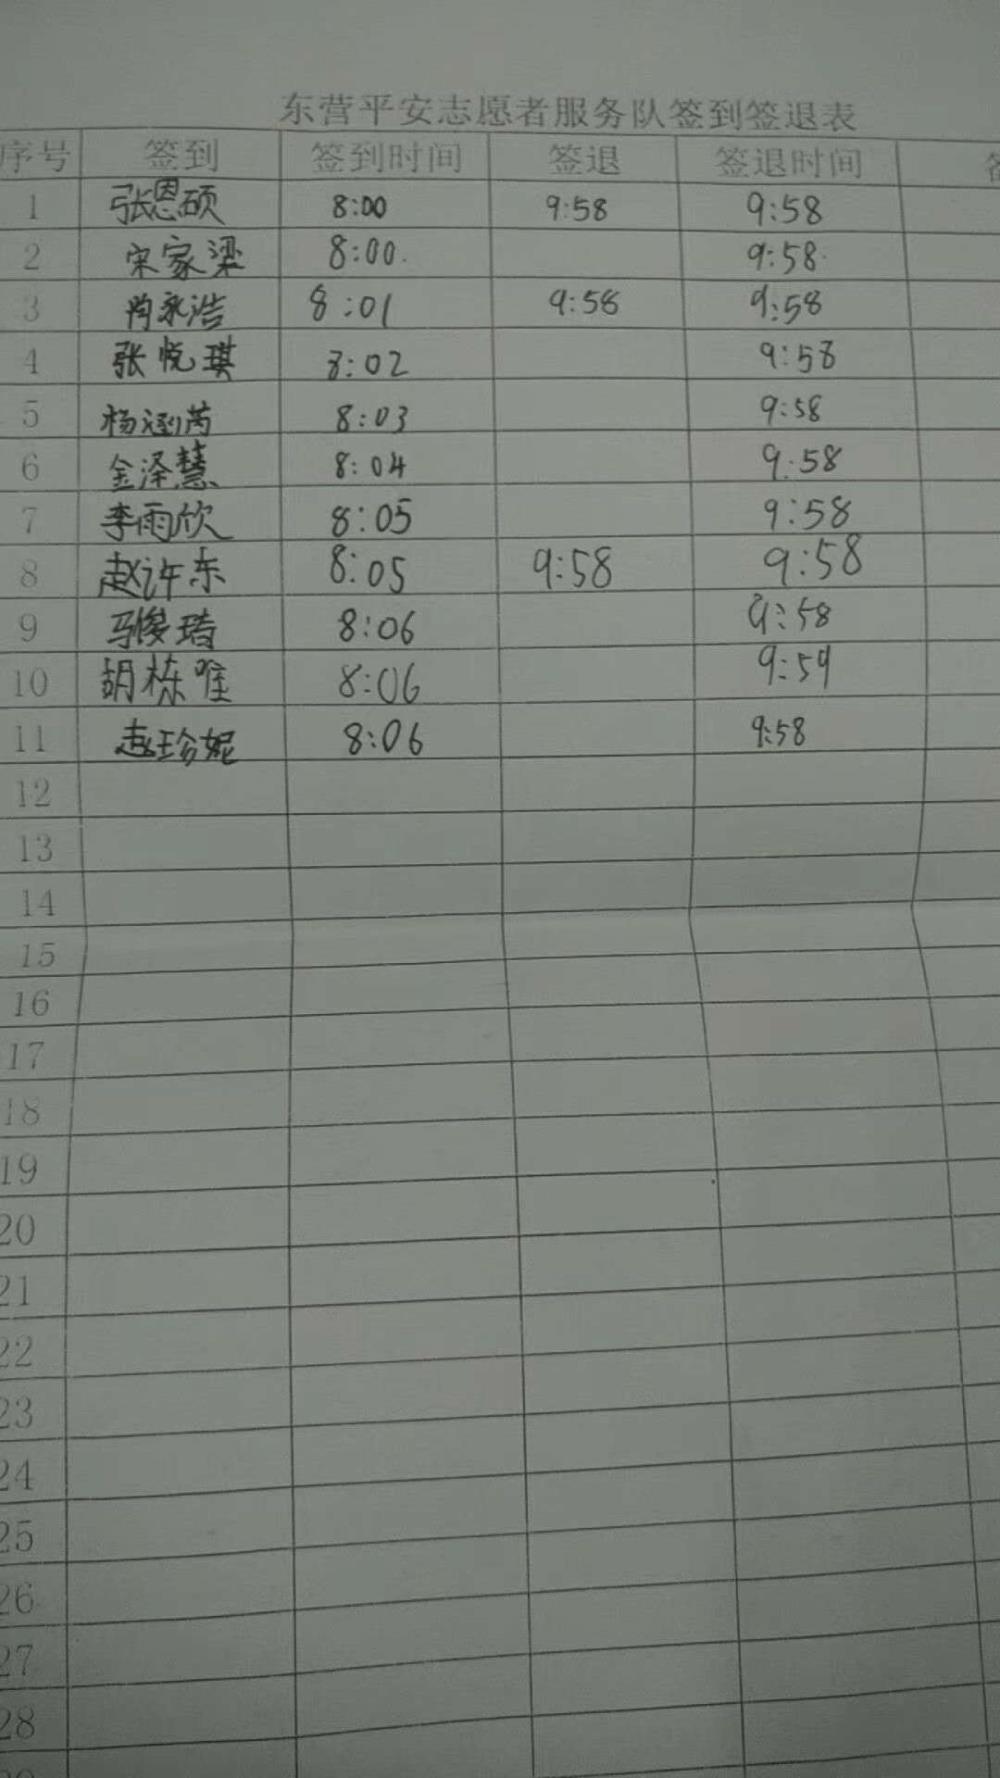 东营平安志愿者服务队签到签退表
序号 签到 签到时间 签退 签退时间
1 张恩硕 8:00 9:58 9:58
2 宋家梁 8:00. 9:58.
3 肖永浩 8:01 9:58 9:58
4 张悦琪 8:02 9:58
5 杨 8:03 9:58
6 金泽慧 8:04 9:58
7 李雨欣 8:05 9:58
8 赵许东 8:05 9:58 9:58
9 马俊 8:06 9:58
10 胡栋唯 8:06 9:59
11 赵珍妮 8:06 9:58
12
13
14
15
16
17
18
19
20
21
22
23
24
25
26
27
28